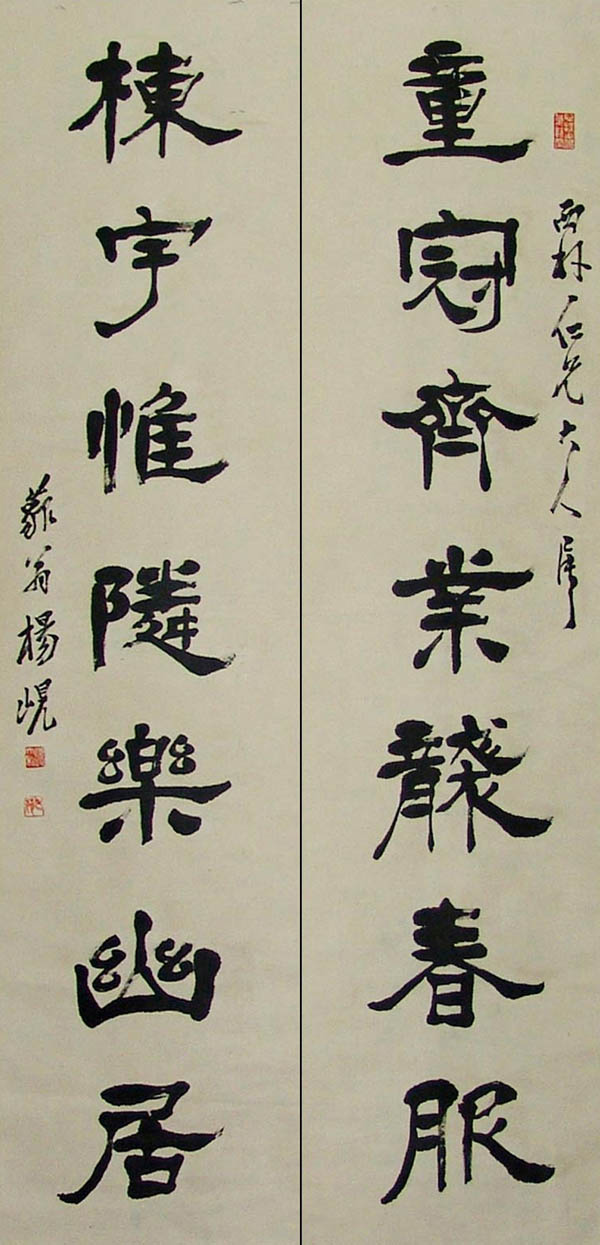 西林仁兄大人属
童冠齊業襲春服
棟宇惟隣樂幽居
藐翁楊峴